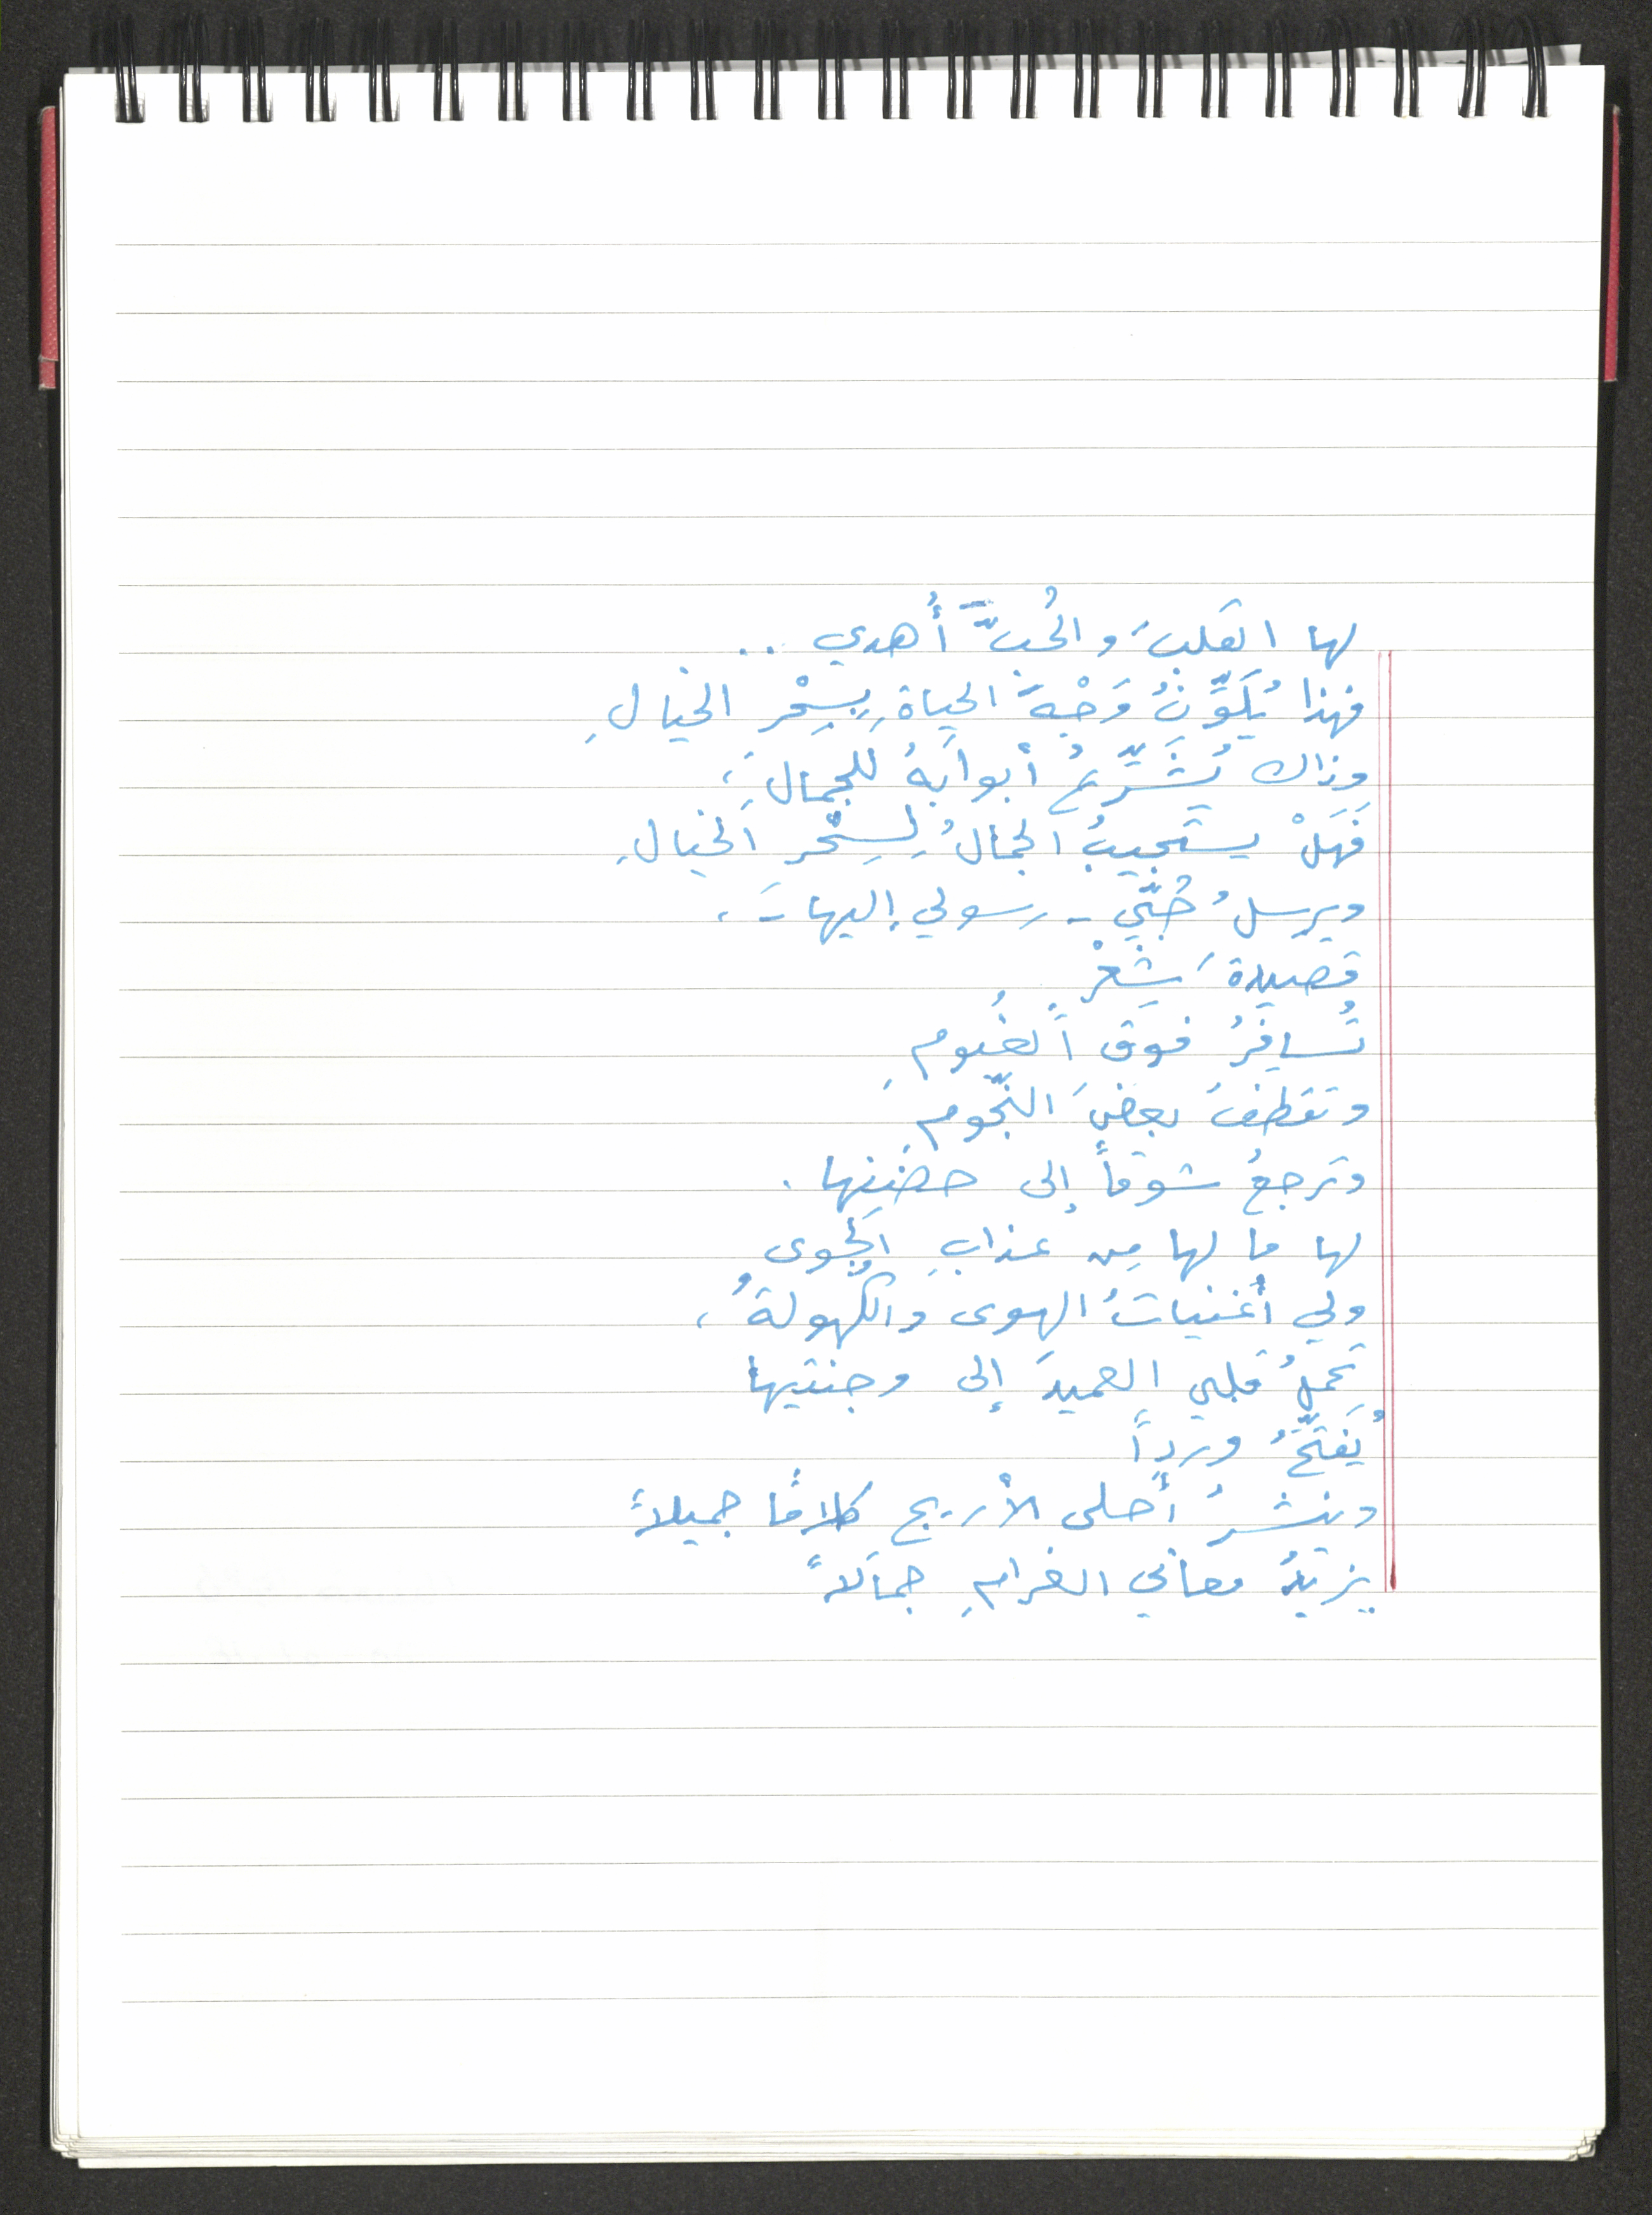 لها القَلبَ والحُبَّ أُهدي ..
فهذا يُكَوِّنُ وَجْهَ الحياةِ بِسِحْرِ الخيالِ
وذاك يُشَرِّعُ أبوابَهُ للجمالِ ،
فَهَلْ يستَجيبُ الجمالُ لِسِحْرِ الخيالِ
ويرسلُ حُبّي - رسولي إليها - ،
قصيدةَ شِعْرٍ
تُسافِرُ فوق الغُيومِ
وتقطفُ بعضَ النّجومِ
وترجعُ شوقاً إلى حضنِها .
لها ما لها مِن عذابِ الجَوى
ولي أُغنياتُ الهوى والكُهولةُ ،
تَحملُ قلبي العميدَ إلى وجنتيها
يُفَتِّحُ ورداً
وينشرُ أحلى الأريج كلامًا جميلاً
يزيدُ معاني الغرامِ جمالاً